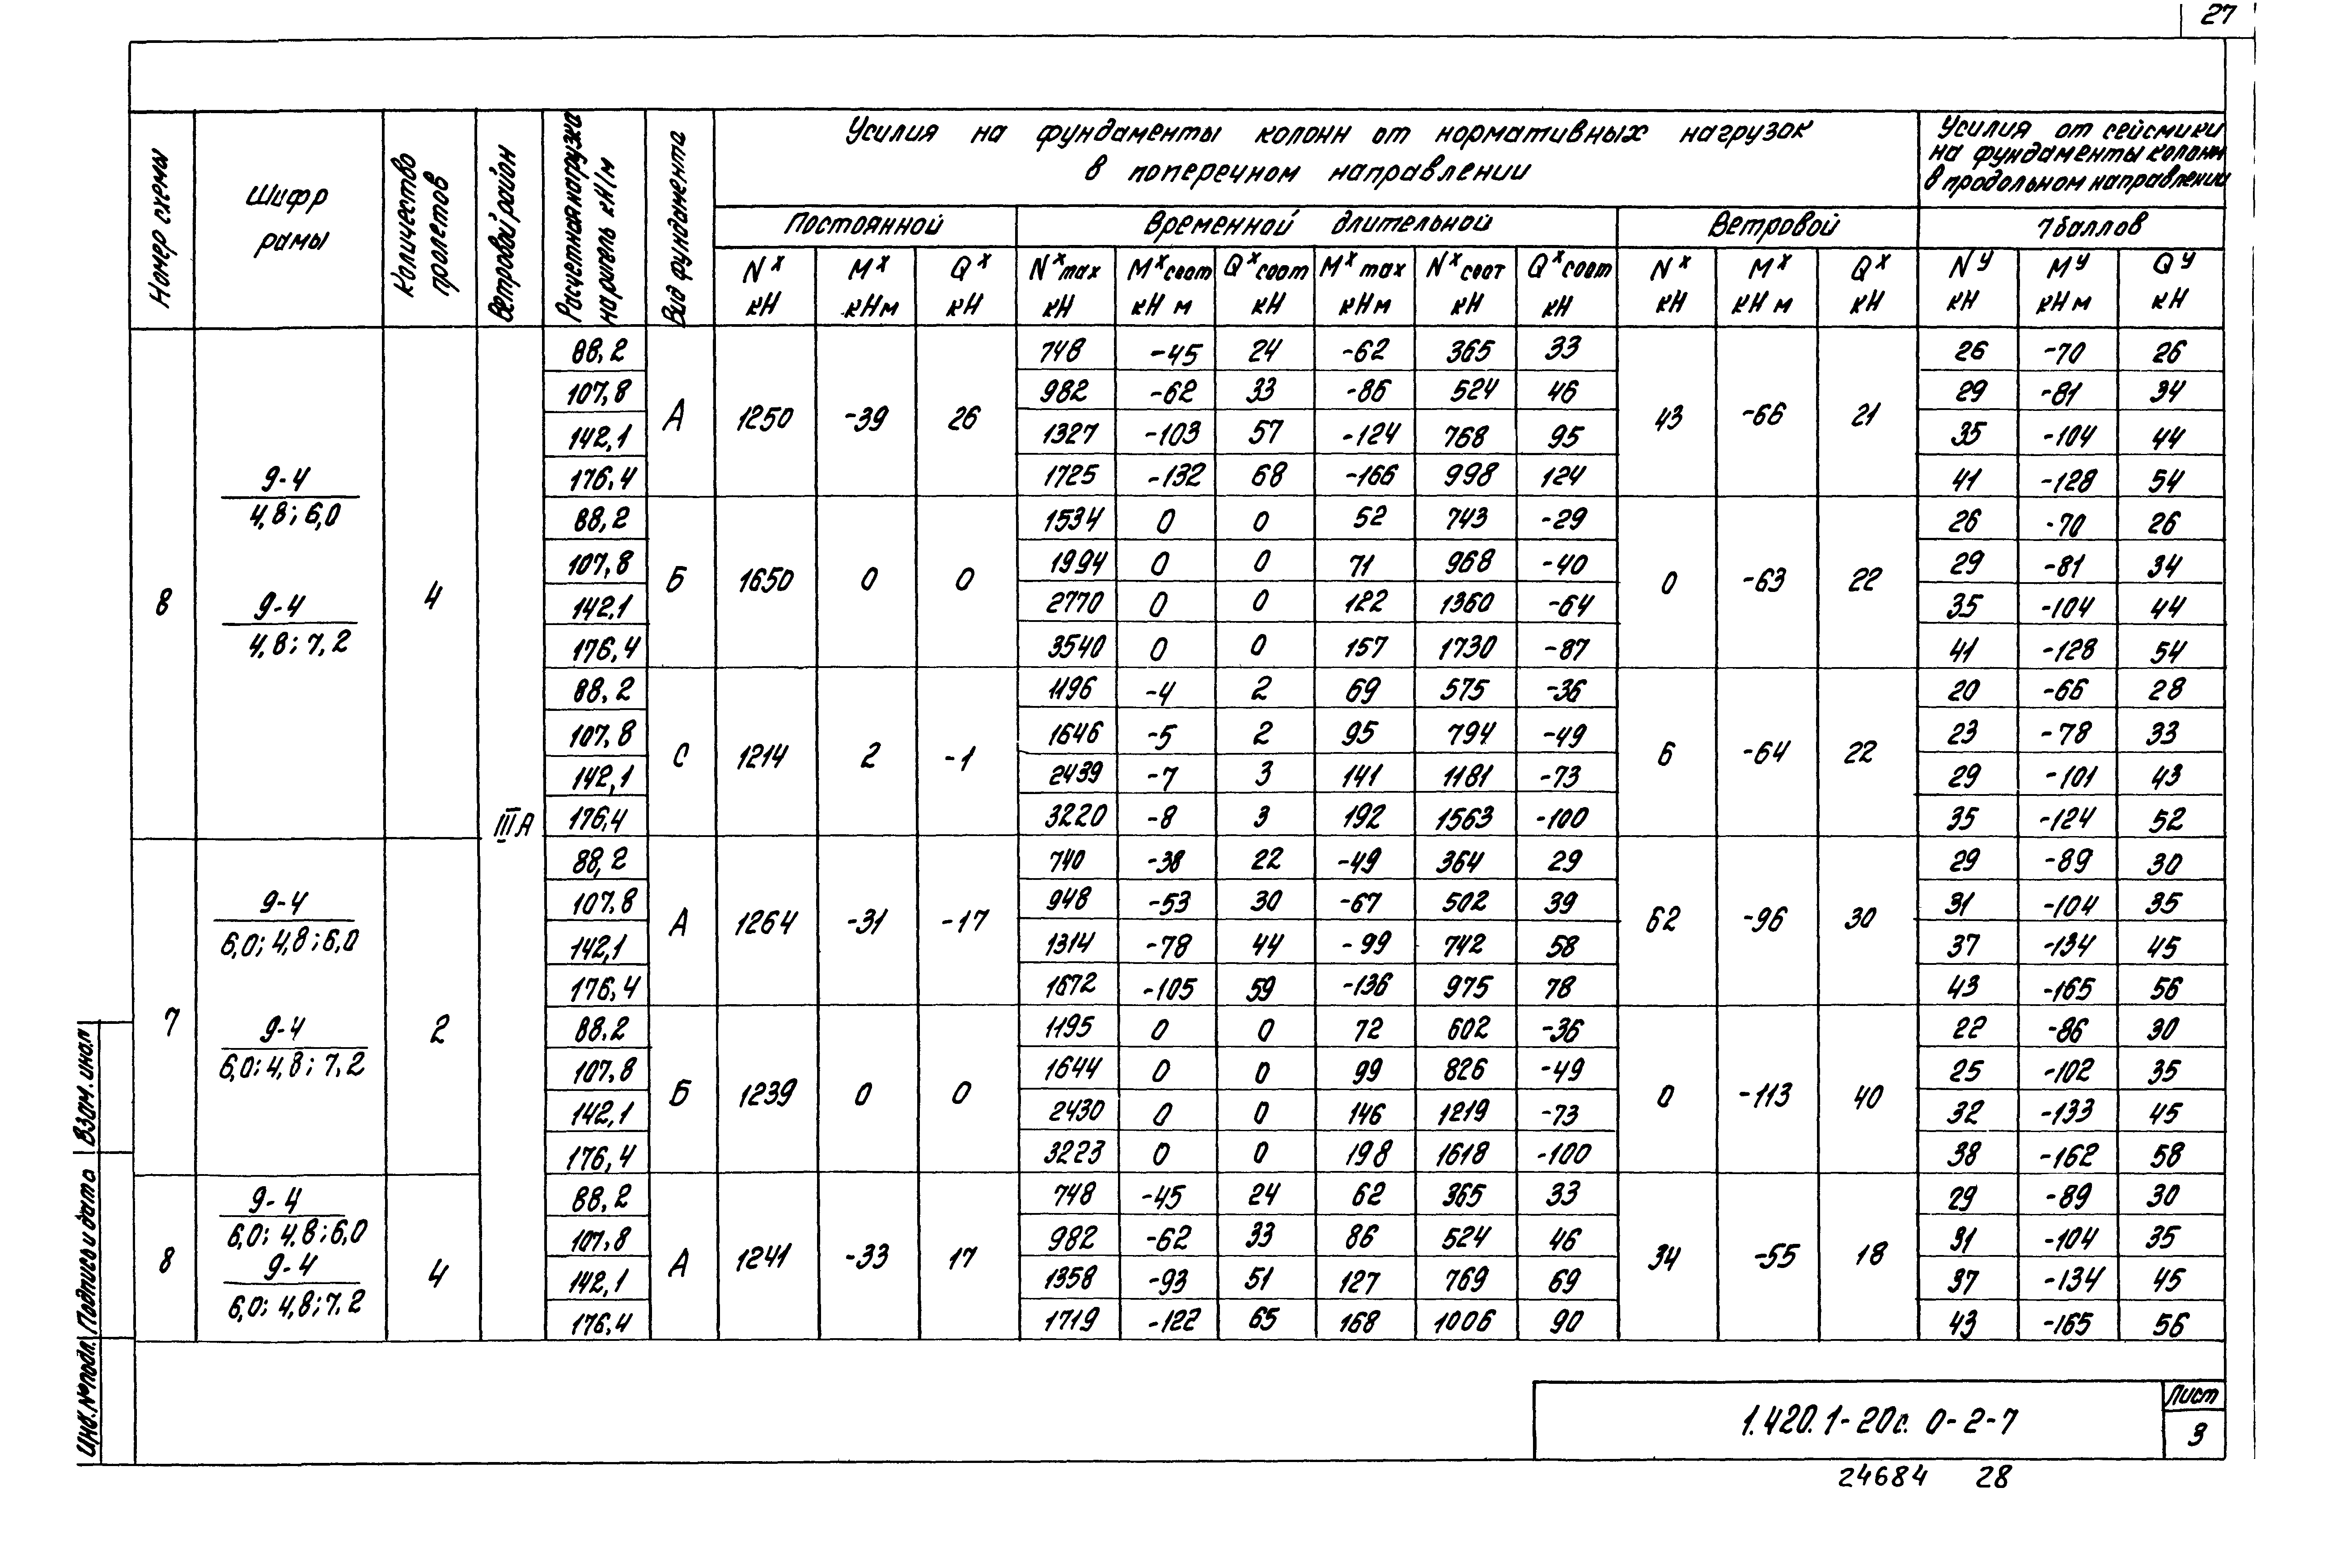 27
Номер схемы
Шифр рамы
Количество пролетов
Ветровой район
Расчетная нагрузка на ригель кН/м
Вид фундамента
Усилия на фундаменты колонн от нормативных нагрузок
в поперечном направлении
Усилия от сейсмики
на фундаменты колонн
в продольном направлении
Постоянной Временной длительной Ветровой 7 баллов
N^x кН M^x кНм Q^x кН N^x max кН M^x соот кН м Q^x соот кН M^x max кНм N^x соот кН Q^x соот кН N^x кН M^x кН м Q^x кН N^y кН M^y кН м Q^y кН
8
9-4
4,8; 6,0
9-4
4,8; 7,2
4
IIIА
А 1250 -39 26 43 -66 21
88,2 748 -45 24 -62 365 33 26 -70 26
107,8 982 -62 33 -86 524 46 29 -81 34
142,1 1327 -103 57 -124 768 95 35 -104 44
176,4 1725 -132 68 -166 998 124 41 -128 54
Б 1650 0 0 0 -63 22
88,2 1534 0 0 52 743 -29 26 -70 26
107,8 1994 0 0 71 968 -40 29 -81 34
142,1 2770 0 0 122 1360 -64 35 -104 44
176,4 3540 0 0 157 1730 -87 41 -128 54
С 1214 2 -1 6 -64 22
88,2 1196 -4 2 69 575 -36 20 -66 28
107,8 1646 -5 2 95 794 -49 23 -78 33
142,1 2439 -7 3 141 1181 -73 29 -101 43
176,4 3220 -8 3 192 1563 -100 35 -124 52
7
9-4
6,0; 4,8; 6,0
9-4
6,0; 4,8; 7,2
2
А 1264 -31 -17 62 -96 30
88,2 740 -38 22 -49 364 29 29 -89 30
107,8 948 -53 30 -67 502 39 31 -104 35
142,1 1314 -78 44 -99 742 58 37 -134 45
176,4 1672 -105 59 -136 975 78 43 -165 56
Б 1239 0 0 0 -113 40
88,2 1195 0 0 72 602 -36 22 -86 30
107,8 1644 0 0 99 826 -49 25 -102 35
142,1 2430 0 0 146 1219 -73 32 -133 45
176,4 3223 0 0 198 1618 -100 38 -162 58
8
9-4
6,0; 4,8; 6,0
9-4
6,0; 4,8; 7,2
4
А 1241 -33 17 34 -55 18
88,2 748 -45 24 62 365 33 29 -89 30
107,8 982 -62 33 86 524 46 31 -104 35
142,1 1358 -93 51 127 769 69 37 -134 45
176,4 1719 -122 65 168 1006 90 43 -165 56
Инв. № подл. Подпись и дата Взам. инв.
1.420.1-20с. 0-2-7
Лист
3
24684 28